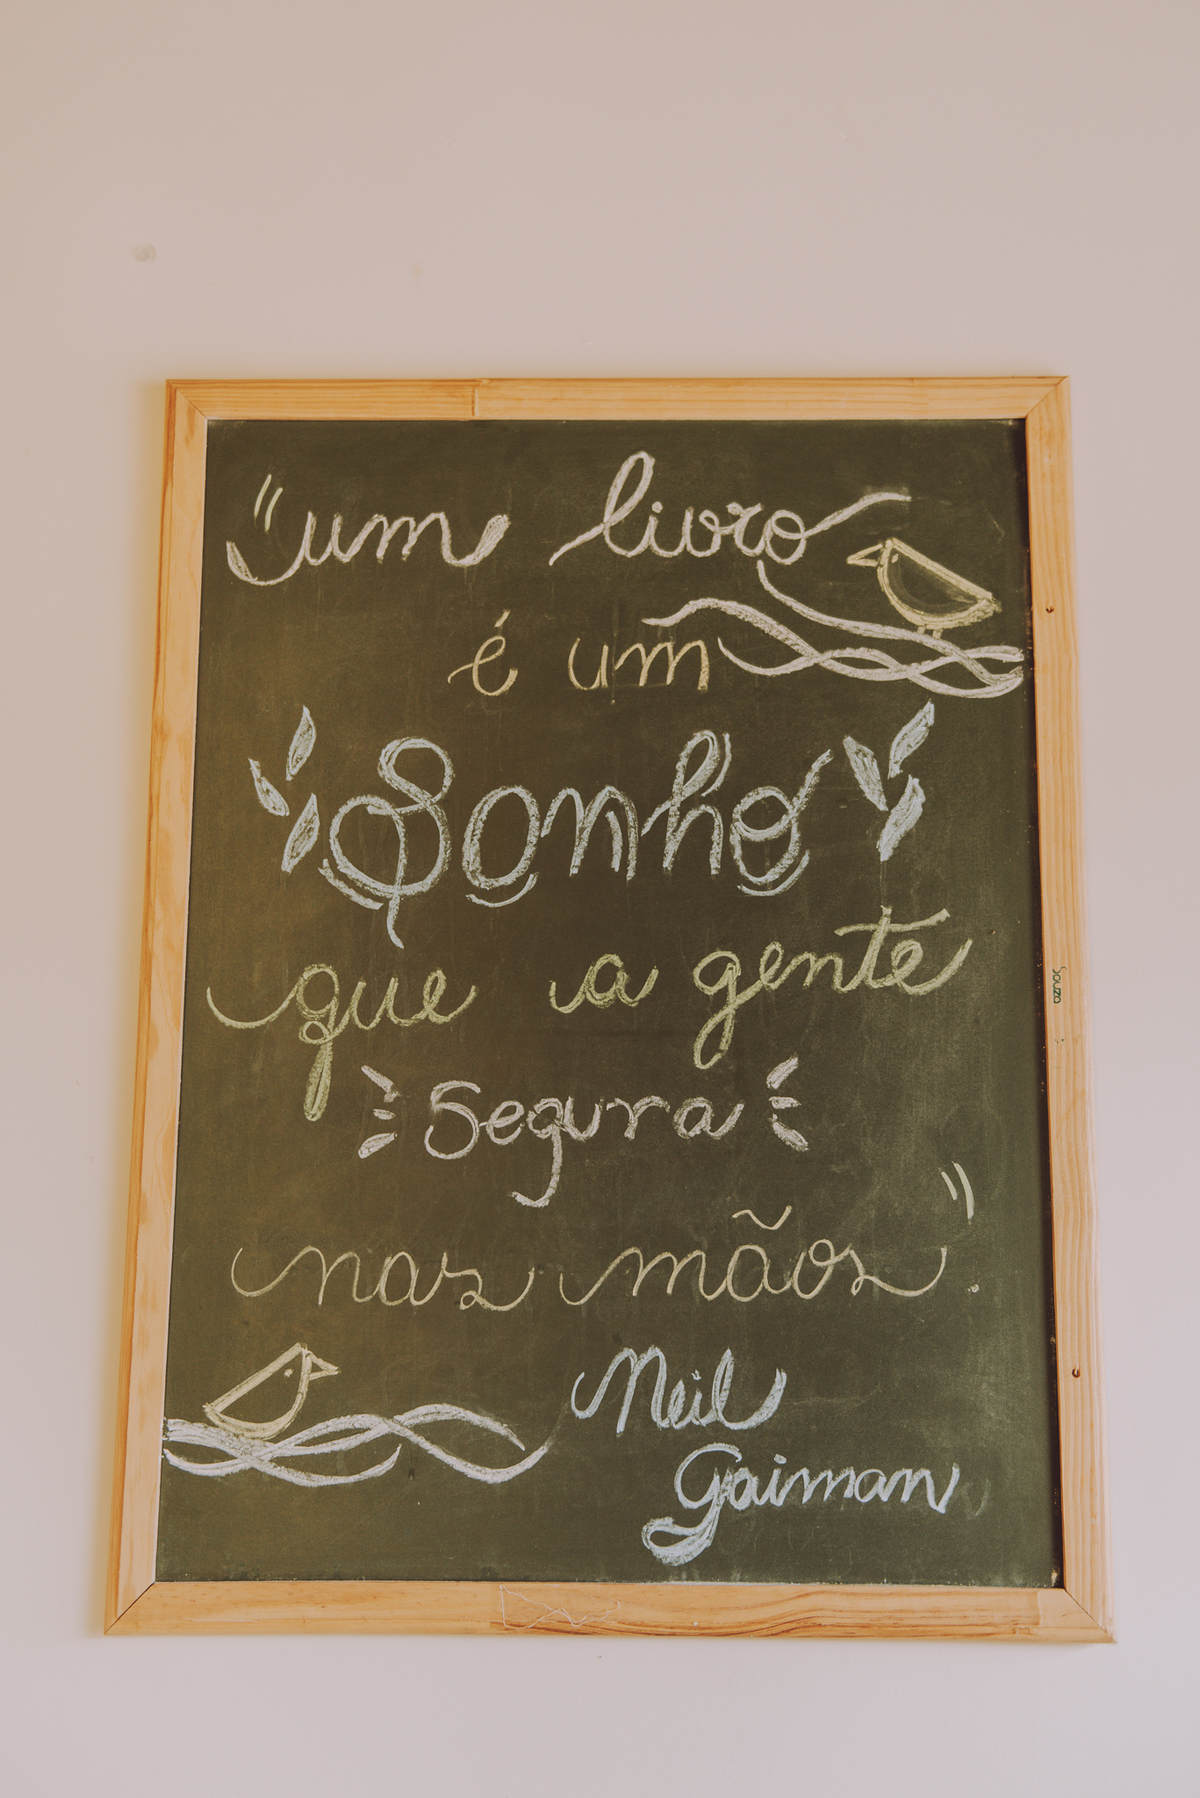 "um livro
é um
Sonho
que a gente
Segura
nas mãos".
Neil
Gaiman
souza